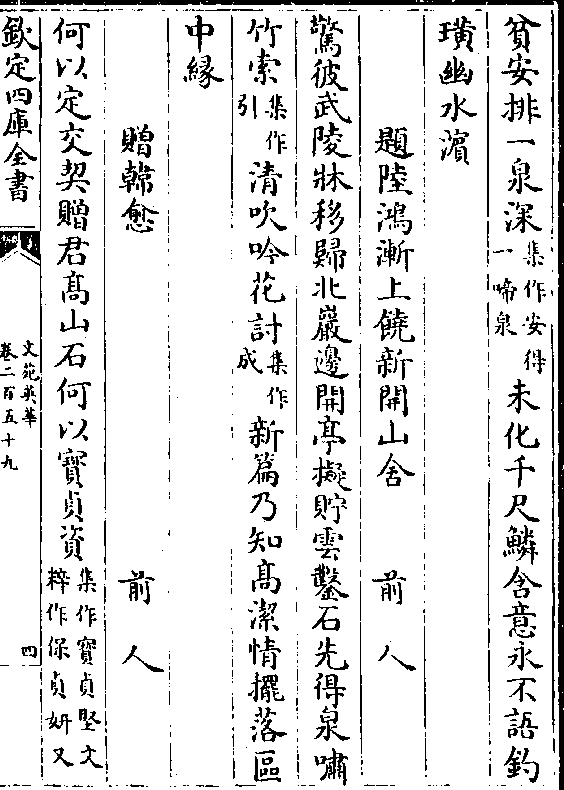 貧安排一泉深集作安得一啼泉未化千尺鱗含意永不語釣
璜幽水濵
題陸鴻漸上饒新開山舍　前人
驚彼武陵牀移歸北巖邊開亭擬貯雲鑿石先得泉嘯
竹索集作引清吹吟花討集作成新篇乃知髙潔情擺落區
中縁
贈韓愈　前人
何以定交契贈君髙山石何以寳貞資集作寳貞堅文粹作保貞妍又
欽定四庫全書
文苑英華
卷二百五十九
四